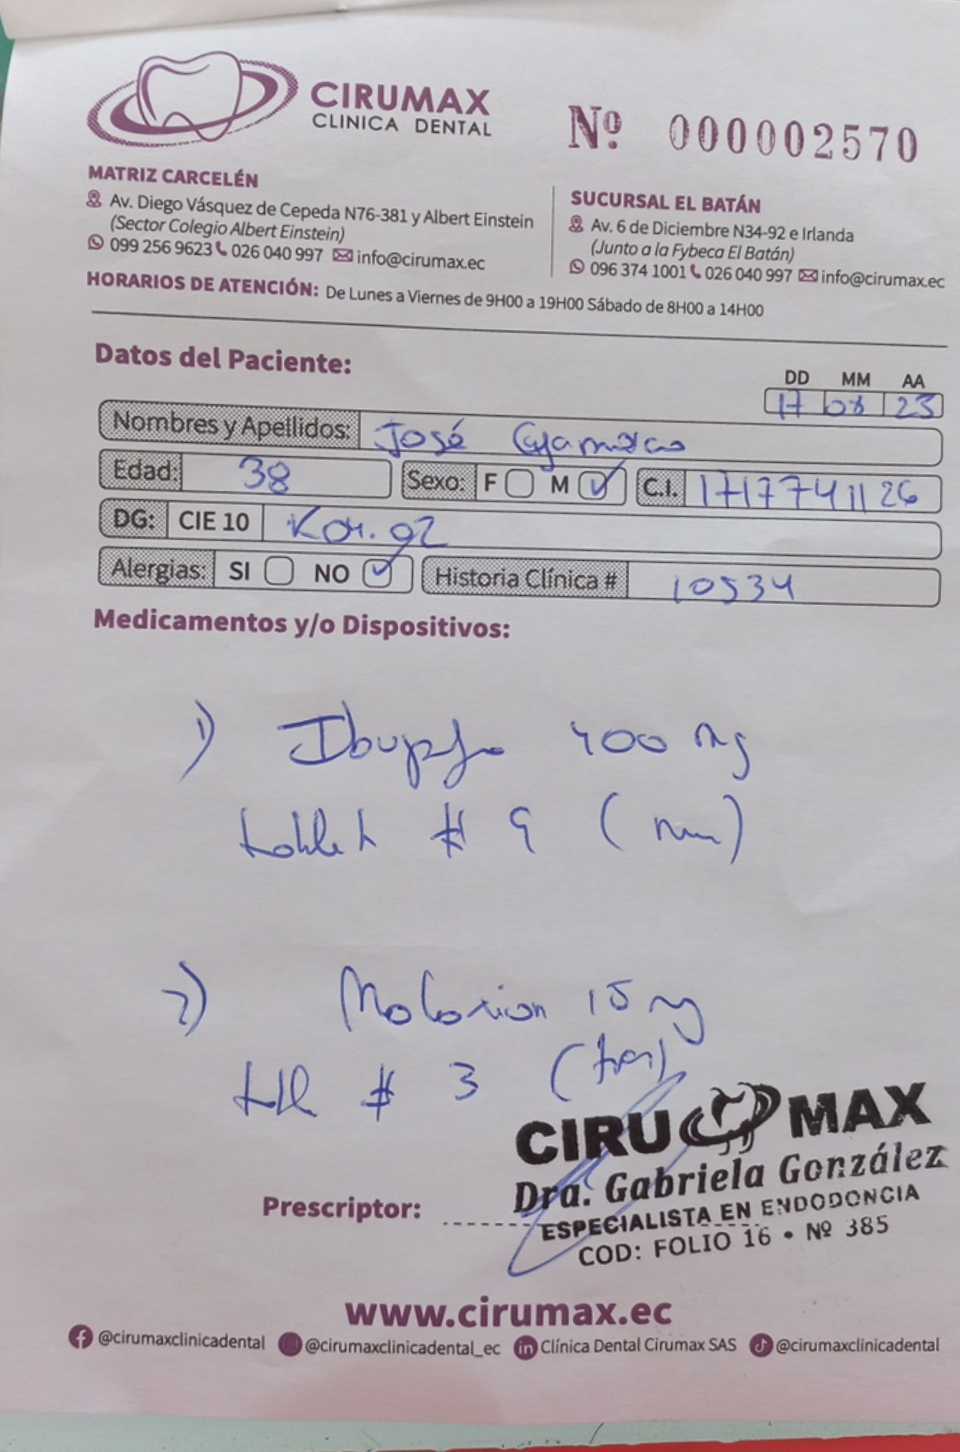 CIRUMAX
CLINICA DENTAL
Nº 000002570
MATRIZ CARCELÉN
Av. Diego Vásquez de Cepeda N76-381 y Albert Einstein
(Sector Colegio Albert Einstein)
099 256 9623 026 040 997 info@cirumax.ec
SUCURSAL EL BATÁN
Av. 6 de Diciembre N34-92 e Irlanda
(Junto a la Fybeca El Batán)
096 374 1001 026 040 997 info@cirumax.ec
HORARIOS DE ATENCIÓN: De Lunes a Viernes de 9H00 a 19H00 Sábado de 8H00 a 14H00
Datos del Paciente:
DD MM AA
17 08 23
Nombres y Apellidos: José Cajamarca
Edad: 38 Sexo: F M C.I. 1717741126
DG: CIE 10 K04.02
Alergias: SI NO Historia Clínica # 10534
Medicamentos y/o Dispositivos:
1) 400 mg
# 9 (
2) 15 mg
# 3 (tres)
CIRUMAX
Dra. Gabriela González
Prescriptor:
ESPECIALISTA EN ENDODONCIA
COD: FOLIO 16 • Nº 385
www.cirumax.ec
@cirumaxclinicadental @cirumaxclinicadental_ec in Clínica Dental Cirumax SAS @cirumaxclinicadental